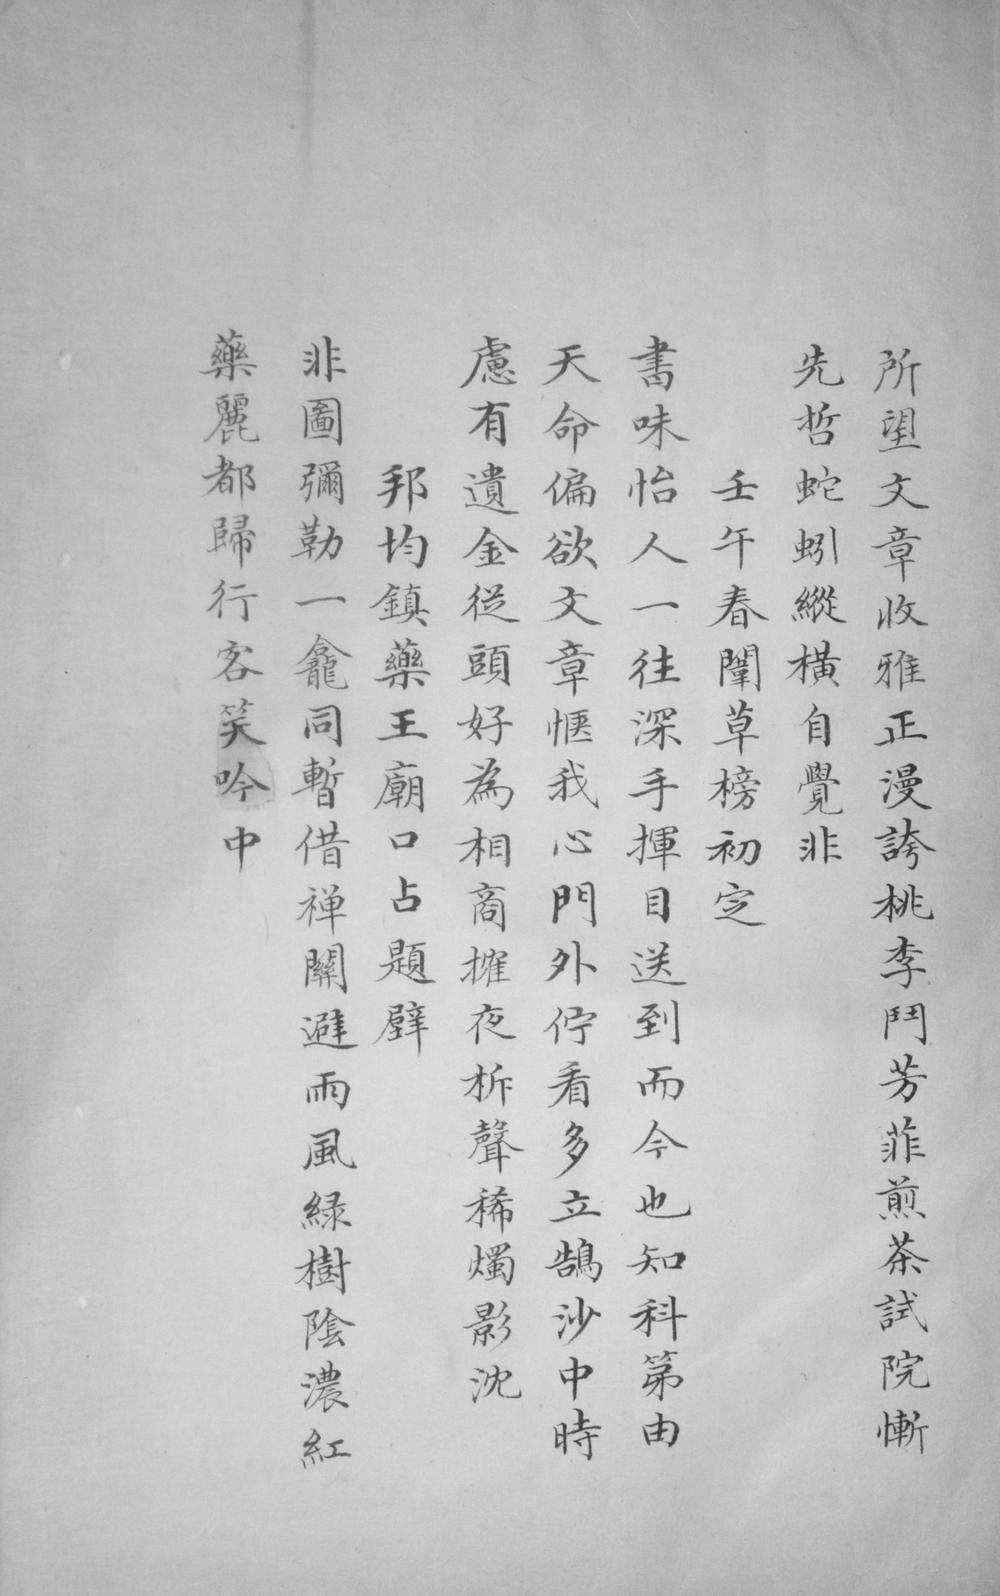 所望文章收雅正漫誇桃李鬥芳菲煎茶試院慚
先哲蛇蚓縱橫自覺非
壬午春闈草榜初定
書味怡人一往深手揮目送到而今也知科第由
天命偏欲文章愜我心門外佇看多立鵠沙中時
慮有遺金從頭好為相商摧夜柝聲稀燭影沈
邦均鎮藥王廟口占題壁
非圖彌勒一龕同暫借禅關避雨風綠樹陰濃紅
藥麗都歸行客笑吟中